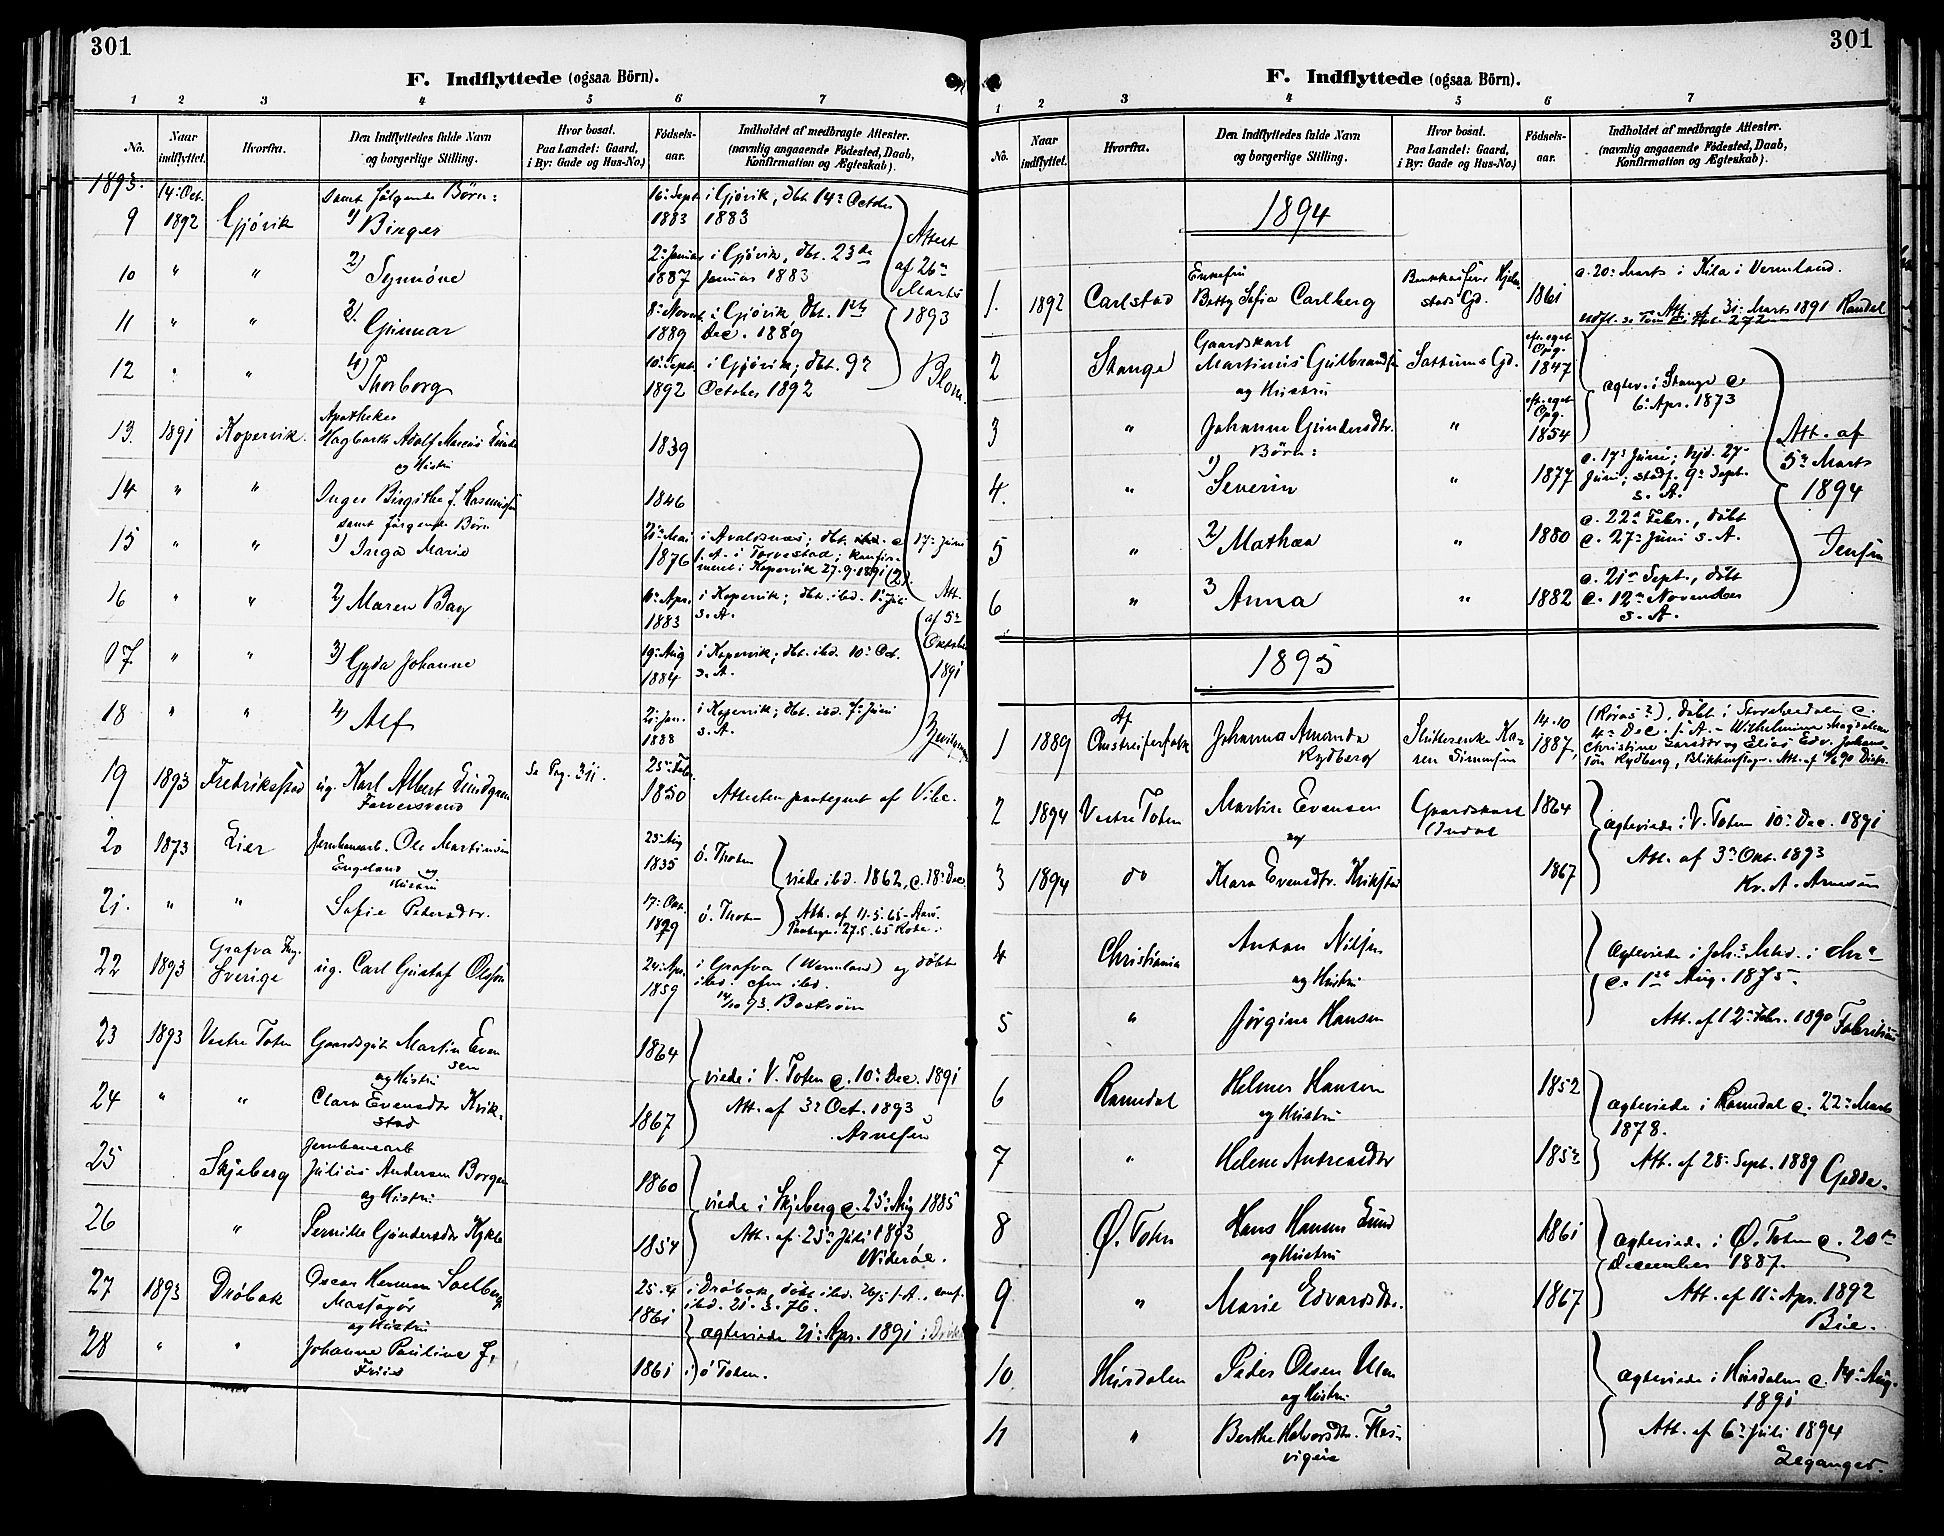 301
F. Indflyttede (ogsaa Börn).
1 2 3 4 5 6 7
No. Naar indflyttet. Hvorfra. Den Indflyttedes fulde Navn og borgerlige Stilling. Hvor bosat. Paa Landet: Gaard, i By: Gade og Hus-No.) Födsels-aar. Indholdet af medbragte Attester. (navnlig angaaende Födested, Daab, Konfirmation og Ægteskab).
1893. 14: Oct. samt følgende Börn: 16: Sept. i Gjövik, dbt. 14: October
9 1892 Gjövik 1) Birger 1883 1883
10 " " 2) Synnöve 2: Januar 1887 i Gjövik, dbt. 23de Januar 1883
11 " " Gunnar 8: Novmt. 1889 i Gjövik, dbt. Dec. 1889
12 " " 4) Thorborg 10: Sept. 1892 i Gjövik; dbt. 9: October 1892
Attest af 26: Marts 1893 Blom.
13. 1891 Kopervik. Apotheker Hagbarth Adolf og Hustru 1839
14 " " Inger Birgithe f. Rasmussen 1846
samt følgende Börn
15 " " 1) Inga Marie Mai 1876 i Avaldsnæs; dbt. s. A. i Torvestad; konfirmeret i Kopervik 27.9.1891 (2).
16 " " 2) Maren Bay Apr. 1883 i Kopervik; dbt. ibd. Juli s. A.
17 " " 3) Gyda Johanne 19: Aug 1884 i Kopervik; dbt. ibd. 10: Oct. s. A.
18 " " 4) Alf Jan. 1888 i Kopervik; dbt. ibd. 7: Juni s. A.
17: Juni Att. af 5: Oktober 1891
19 1893 Fredrikstad ug. Karl Albert Lindgren Farversvend Se Pag. 311. 25: Febr. 1850 Attesten paategnet af Vibe.
20 1873 Lier Jernbanearb. Ole Martinsen Engeland og Hustru 25: Aug 1835 ö. Thoten
21. " " Sofie Petersdtr. 17: Oct. ö. Thoten
viede ibd. 1862, c. 18: Dec. Att. af 11.5.65 Paategn. 27.5.65
22 1893 Grafva Sverige ug. Carl Gustaf Olsson 24: Apr. 1859 i Grafva (Wermland) og döbt ibd. cfm ibd. 14/10 93. Boström
23 1893 Vestre Toten Gaardsgut Martin Evensen og Hustru 1864
24 " " Clara Evensdtr Kvikstad 1867
viede i V. Toten c. 10: Dec. 1891 Att. af 3: Oct. 1893 Arnesen
25 Skjeberg Jernbanearb Julius Andersen Borgen og Hustru 1860
26 " Pernille Gundersdtr 1854
viede i Skjeberg c. 25: Aug 1885 Att. af 25: Juli 1893 Wideröe.
27 1893 Dröbak Oscar Herman Solberg og Hustru 25.4 1861 i Dröbak, döbt ibd. s. A., conf. ibd. 21.3.76.
28 " " Johanne Pauline f. Friis 1861 i ö Toten.
ægteviede 21: Apr. 1891 i Dröbak
301
F. Indflyttede (ogsaa Börn).
1 2 3 4 5 6 7
No. Naar indflyttet. Hvorfra. Den Indflyttedes fulde Navn og borgerlige Stilling. Hvor bosat. Paa Landet: Gaard, i By: Gade og Hus-No.) Födsels-aar. Indholdet af medbragte Attester. (navnlig angaaende Födested, Daab, Konfirmation og Ægteskab).
1894
1. 1892 Carlstad Enkefru Betty Sofia Carlberg Gd. 1861 c. 20: Marts i Kila i Vermland. Att. af 31: Marts 1891 272
2 Stange Gaardskarl Martinus Gulbrandsen og Hustru Sattums Gd. eft. eget Opg. 1847
3 " Johanne Gundersdtr. " eft. eget Opg. 1854
ægtev. i Stange c. 6: Apr. 1873
Börn:
4. " 1) Severin " 1877 c. 17: Juni; hjd. 27. Juni; stadf. 9: Sept. s. A.
5 " 2) Mathea " 1880 c. 22: Febr., döbt c. 27: Juni s. A.
6 " 3 Anna " 1882 c. 21: Sept., döbt c. 12: November s. A.
Att. af 5: Marts 1894 Jensen
1895
1 1889 Af Omstreiferfolk Johanna Amanda Rydberg Karen Simensen 14.10 1887, (Röros?), döbt i c. 4: Dec. s. A. - Wilhelmine Magdalene Christine Larsdtr og Elias Edv. Johansson Rydberg, Blikkenslager. Att. af 90
2 1894 Vestre Toten Martin Evensen og Gaardskarl 1864
3 1894 do Klara Evensdtr. Kvikstad 1867
ægteviede i V. Toten 10: Dec. 1891 Att. af 3: Okt. 1893 Kr. A. Arnesen
4 Christiania Anton Nilsen og Hustru
5 " Jörgine Hansen
ægteviede i Joh.s Mhd. i Chr.a c. 1ste Aug. 1875. Att. af 12: Febr. 1890 Fabritius
6 Ramdal Helmer Hansen og Hustru 1852
7 " Helene Andreasdtr 1852
ægteviede i Ramdal c. 22: Marts 1878. Att. af 28: Sept. 1889 Gedde.
8 Ø. Toten Hans Hansen Lund og Hustru 1861
9 " Marie Edvardsdtr. 1867
ægteviede i Ø. Toten c. 20de December 1887. Att. af 11: Apr. 1892 Bie.
10 Hurdalen Peder Olsen og Hustru
11 " Berthe Halvorsdtr.
ægteviede i Hurdalen c. 14: Aug. 1891 Att. af 6: Juli 1894 Leganger.